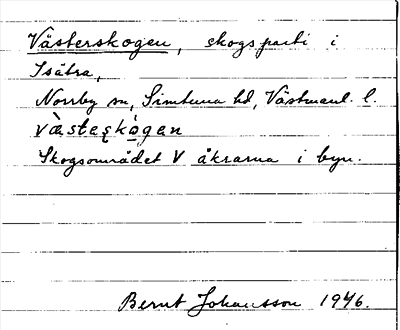 Västerskogen, skogsparti i
Isätra,
Norrby sn, Simtuna hd, Västmanl. l.
västeskogen
Skogsområdet V åkrarna i byn.
Bernt Johansson 1946.